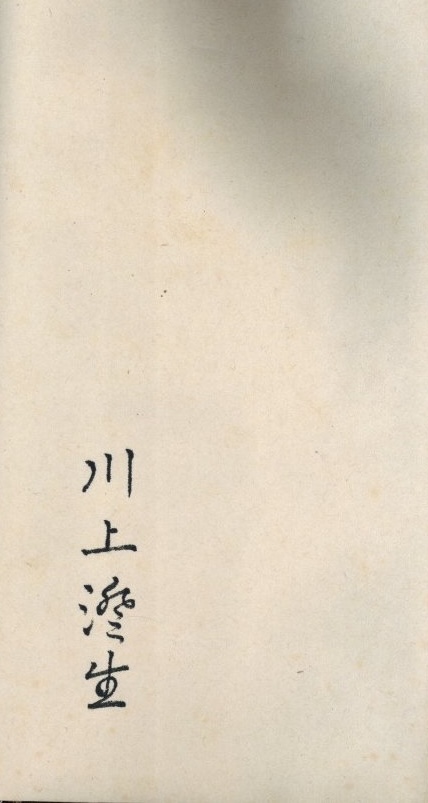 川上澄生